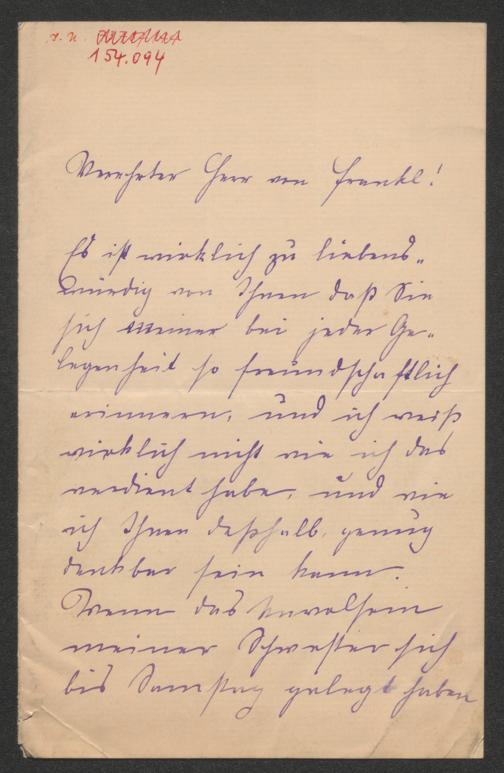 I. N.
154.094
Verehrter Herr von Frankl!
Es ist wirklich zu liebens„
würdig von Ihnen daß Sie
sich meiner bei jeder Ge„
legenheit so freundschaftlich
erinnern, und ich weiß
wirklich nicht wie ich das
verdient habe, und wie
ich Ihnen deßhalb genug
dankbar sein kann.
Wenn das Unwolsein
meiner Schwester sich
bis Samstag gelegt haben